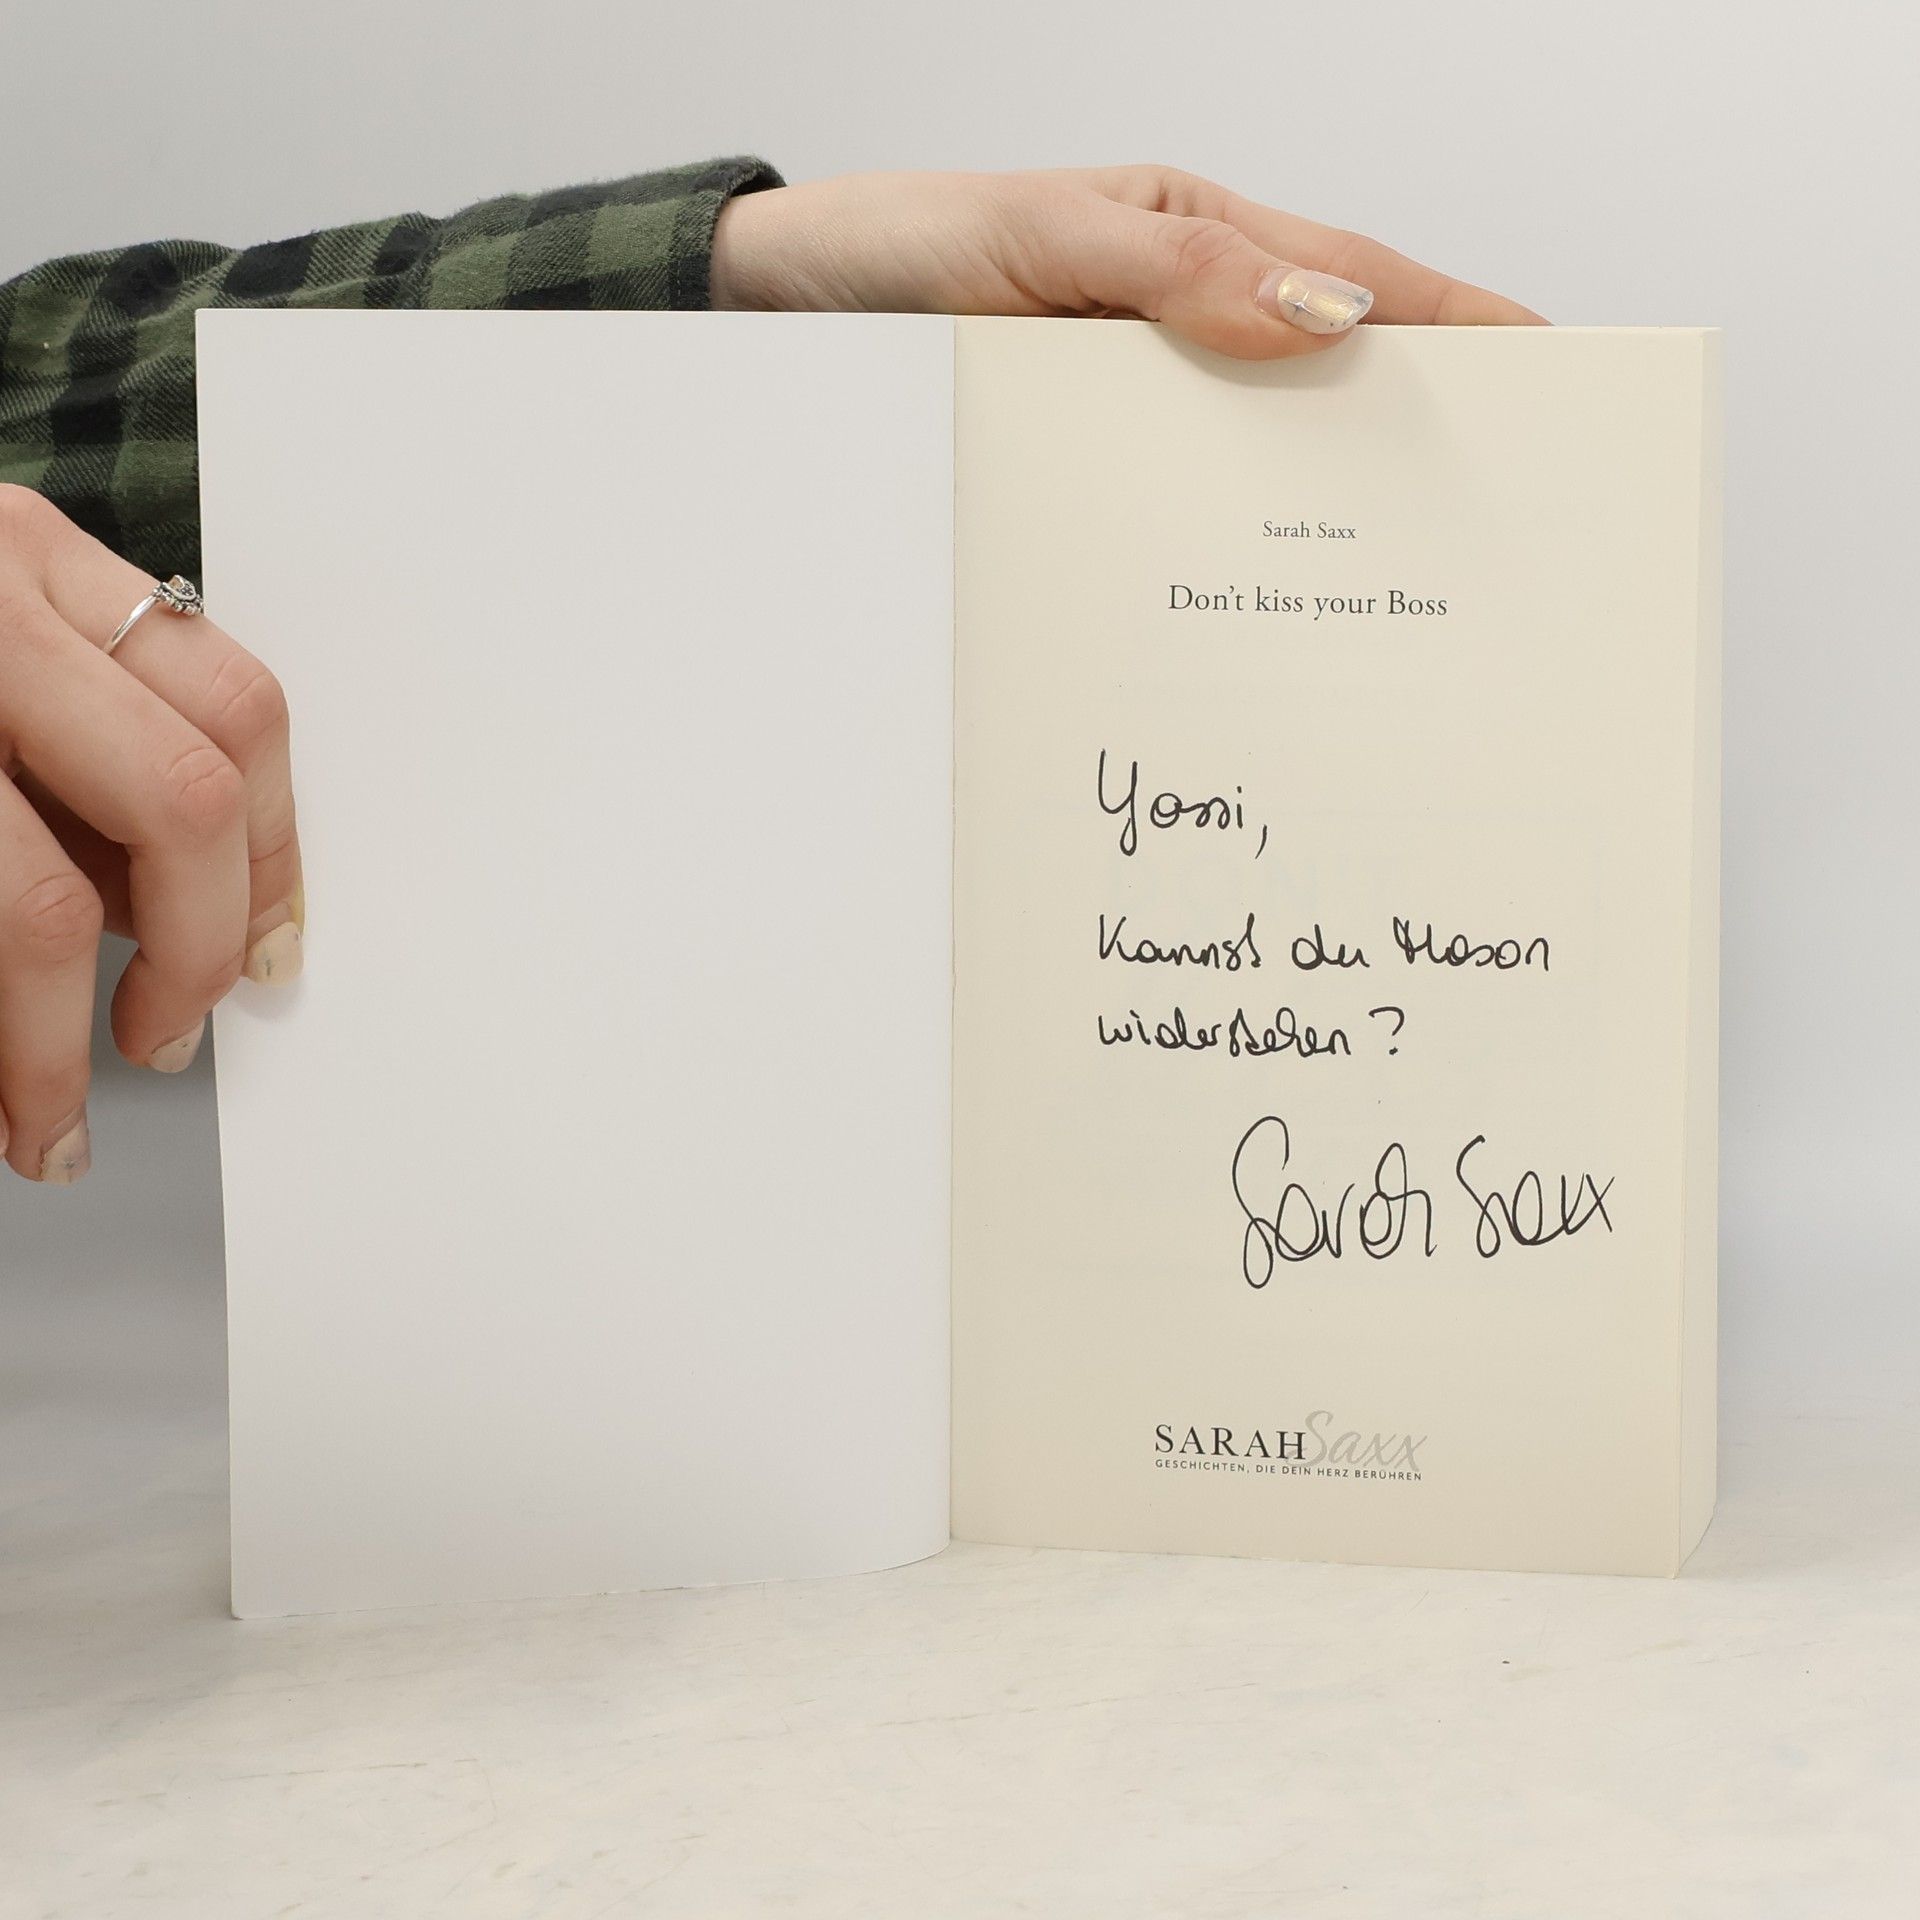 Sarah Saxx
Don't kiss your Boss
Yossi,
Kannst du Mason
widerstehen?
Sarah Saxx
SARAH Saxx
GESCHICHTEN, DIE DEIN HERZ BERÜHREN